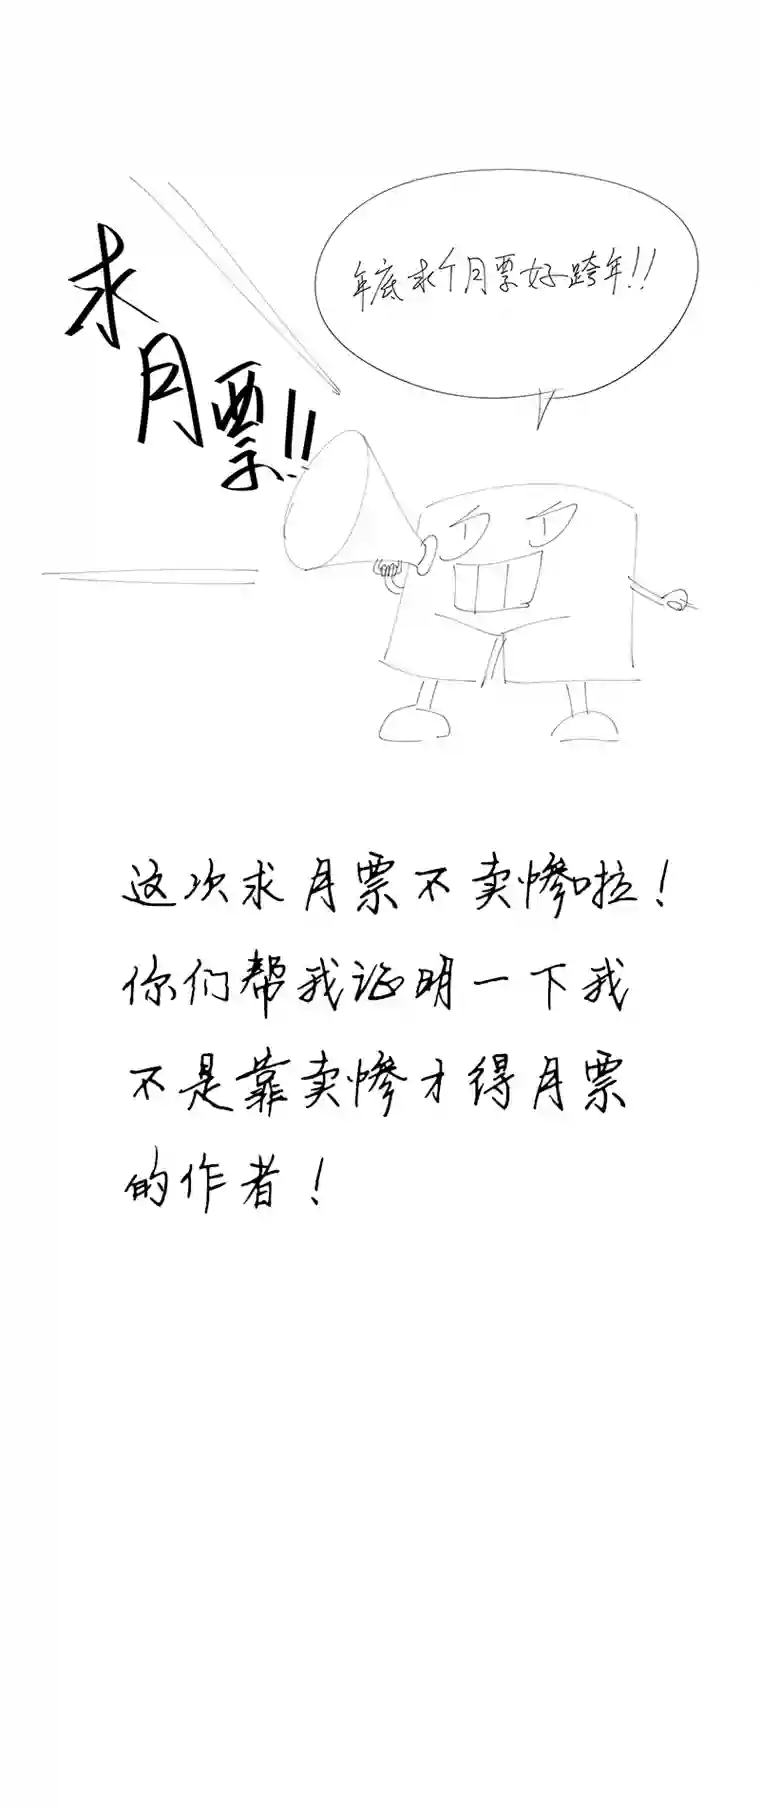 年底求个月票好跨年!!
求月票!!
这次求月票不卖惨啦!
你们帮我证明一下我
不是靠卖惨才得月票
的作者!